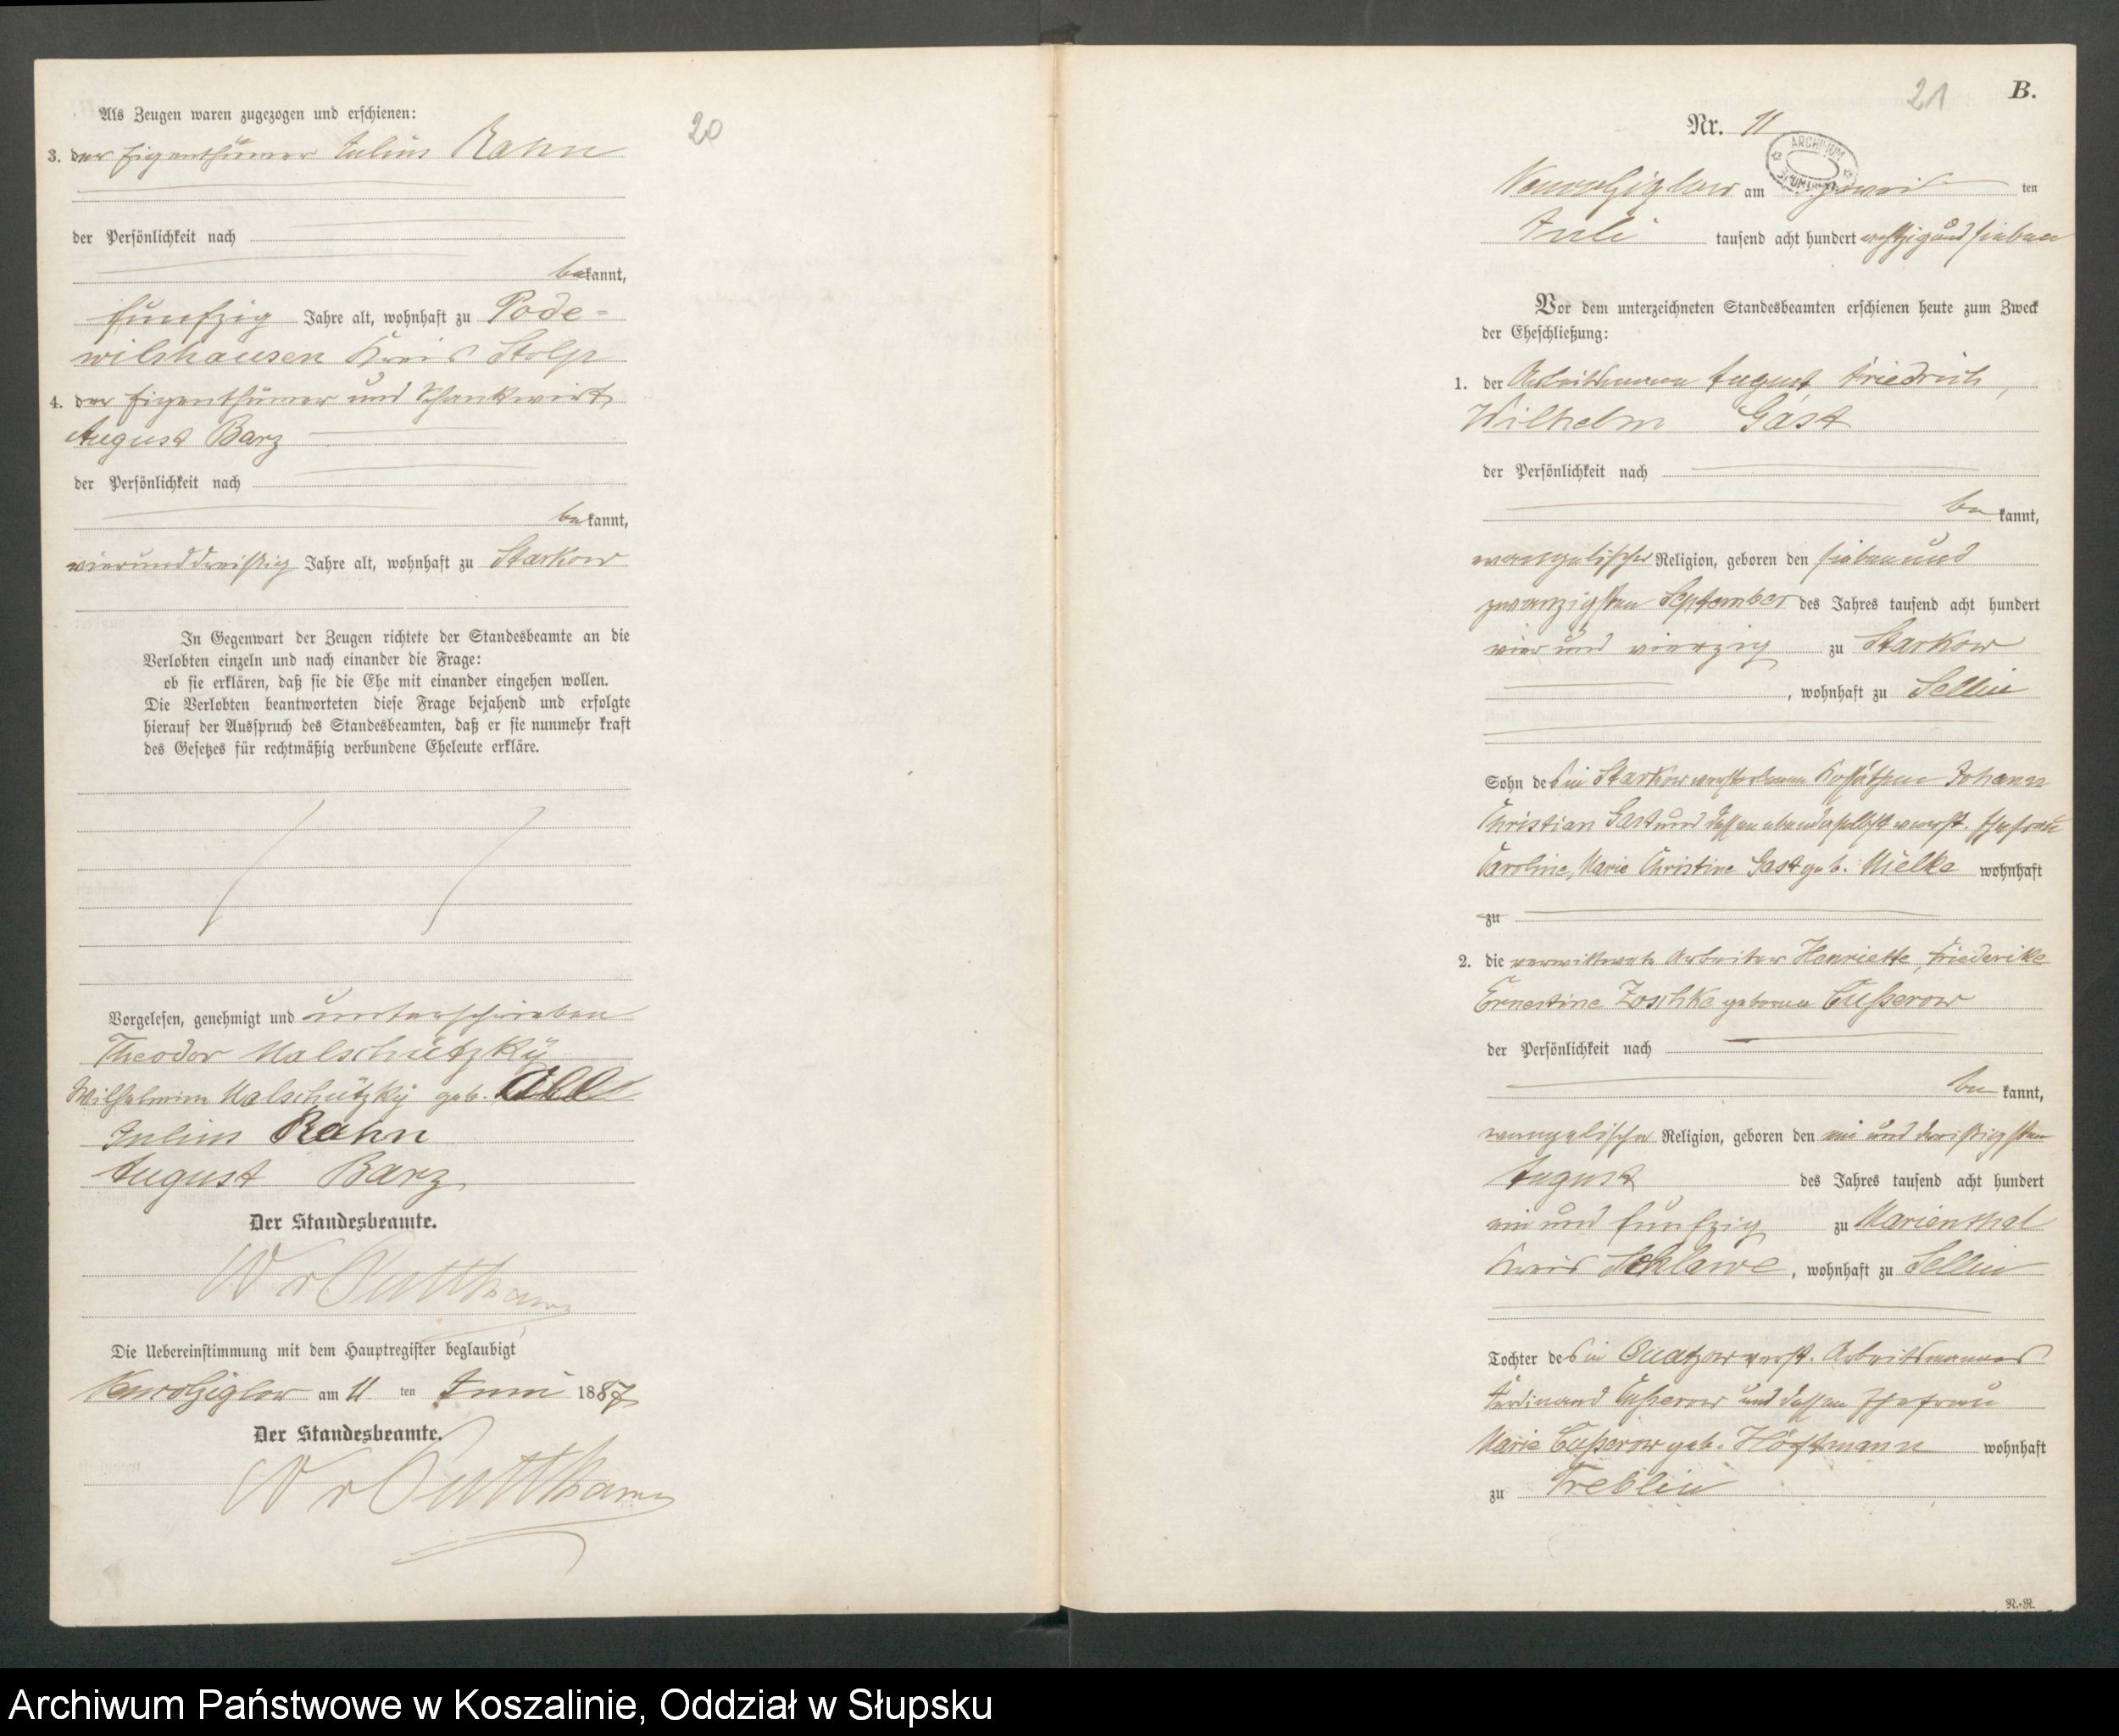 Als Zeugen waren zugezogen und erschienen:
20
3. der Eigenthümer Julius Rahn
der Persönlichkeit nach
bekannt,
fünfzig Jahre alt, wohnhaft zu Pode-
wilshausen Kreis Stolp
4. der Eigenthümer und Schankwirth
August Barz
der Persönlichkeit nach
bekannt,
vierunddreißig Jahre alt, wohnhaft zu Starkow
In Gegenwart der Zeugen richtete der Standesbeamte an die
Verlobten einzeln und nach einander die Frage:
ob sie erklären, daß sie die Ehe mit einander eingehen wollen.
Die Verlobten beantworteten diese Frage bejahend und erfolgte
hierauf der Ausspruch des Standesbeamten, daß er sie nunmehr kraft
des Gesetzes für rechtmäßig verbundene Eheleute erkläre.
Vorgelesen, genehmigt und unterschrieben
Theodor Malschützky
Wilhelmine Malschützky geb.
Julius Rahn
August Barz
Der Standesbeamte.
W v Puttkamer
Die Uebereinstimmung mit dem Hauptregister beglaubigt
Wendischziglow am 11 ten Juni 1887
Der Standesbeamte.
W v Puttkamer
21
B.
Nr. 11
ARCHIWUM
am zwei ten
Juli tausend acht hundert achtzig und sieben
Vor dem unterzeichneten Standesbeamten erschienen heute zum Zweck
der Eheschließung:
1. der Arbeitsmann August Friedrich,
Wilhelm Gast
der Persönlichkeit nach
bekannt,
evangelischer Religion, geboren den sieben und
zwanzigsten September des Jahres tausend acht hundert
vier und vierzig zu Starkow
, wohnhaft zu Sellin
Sohn des in Starkow verstorbenen Kossäthen Johann
Christian Gast und dessen ebendaselbst verst. Ehefrau
Caroline, Marie Christine Gast geb. Mielke wohnhaft
zu
2. die verwittwete Arbeiter Henriette, Friederike
Ernestine Zoschke geborene Cusserow
der Persönlichkeit nach
bekannt,
evangelischer Religion, geboren den ein und dreißigsten
August des Jahres tausend acht hundert
ein und fünfzig zu Marienthal
Kreis Schlawe, wohnhaft zu Sellin
Tochter des in Quatzow verst. Arbeitsmannes
Ferdinand Cusserow und dessen Ehefrau
Marie Cusserow geb. Höftmann wohnhaft
zu Treblin
N.-R.
Archiwum Państwowe w Koszalinie, Oddział w Słupsku